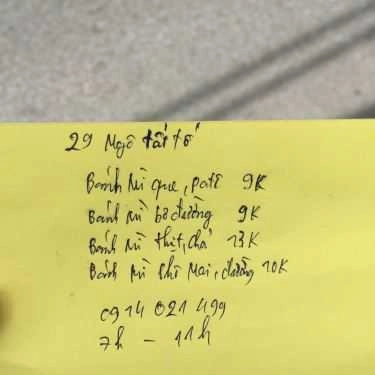 29 Ngô tất tố
Bánh Mì que, patê 9K
Bánh Mì bơ đường 9K
Bánh Mì thịt, chả 13K
Bánh Mì Chà Mai, đường 10K
0914 021 499
7h - 11h